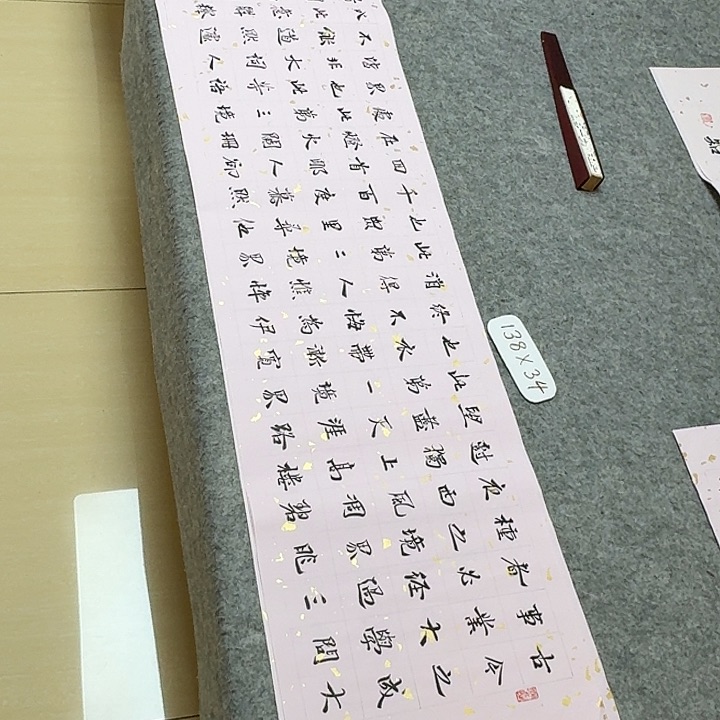 古今之成大
事業大學問
者必經過三
種之境界昨
夜西風凋碧
樹獨上高樓
望盡天涯路
此第一境界
也衣帶漸寬
終不悔為伊
消得人憔悴
此第二境界
也眾里尋他
千百度驀然
回首那人卻
在燈火闌珊
處此第三境
界也此等語
皆非大詞人
不能道然遽
以此意解釋
138×34